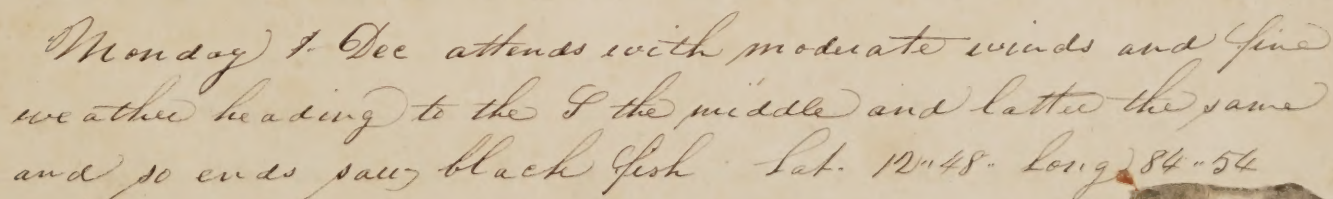 Monday 1 Dec attends with moderate winds and fine
weather heading to the S the middle and latter the same
and so ends saw black fish Lat. 12"48" Long 84"54